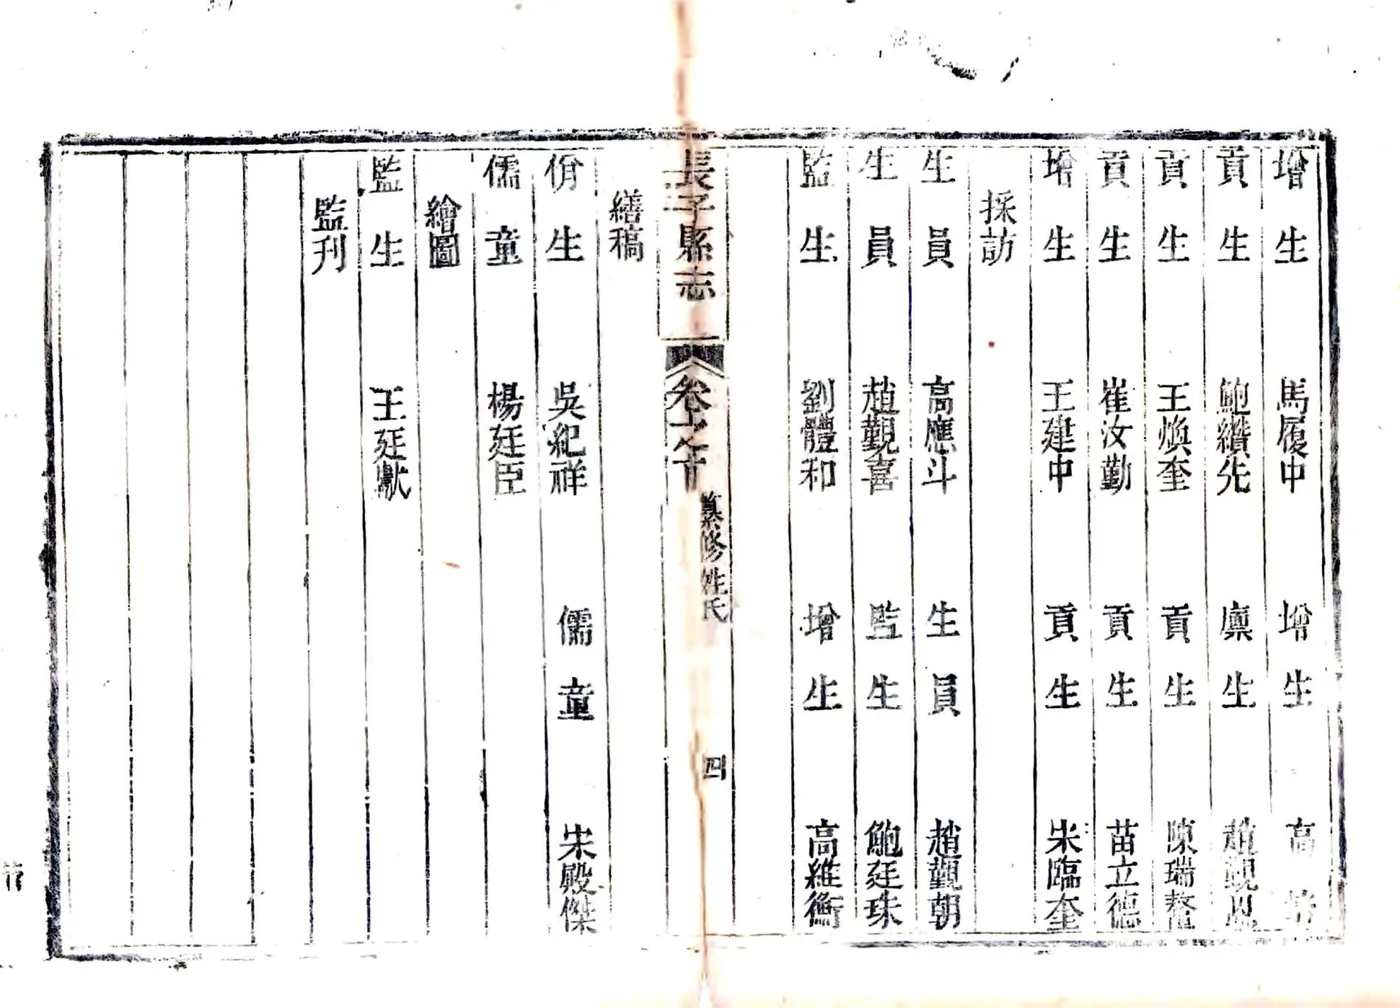 增生 馬履中 增生 高
貢生 鮑纘先 廪生 趙觀
貢生 王煥奎 貢生 陳瑞
貢生 崔汝勤 貢生 苗立德
增生 王建中 貢生 朱臨奎
採訪
生員 高應斗 生員 趙觀朝
生員 趙觀喜 監生 鮑廷珠
監生 劉體和 增生 高維衡
長子縣志 卷之 纂修姓氏 四
繕稿
佾生 吳紀祥 儒童 宋殿傑
儒童 楊廷臣
繪圖
監生 王廷獻
監刊